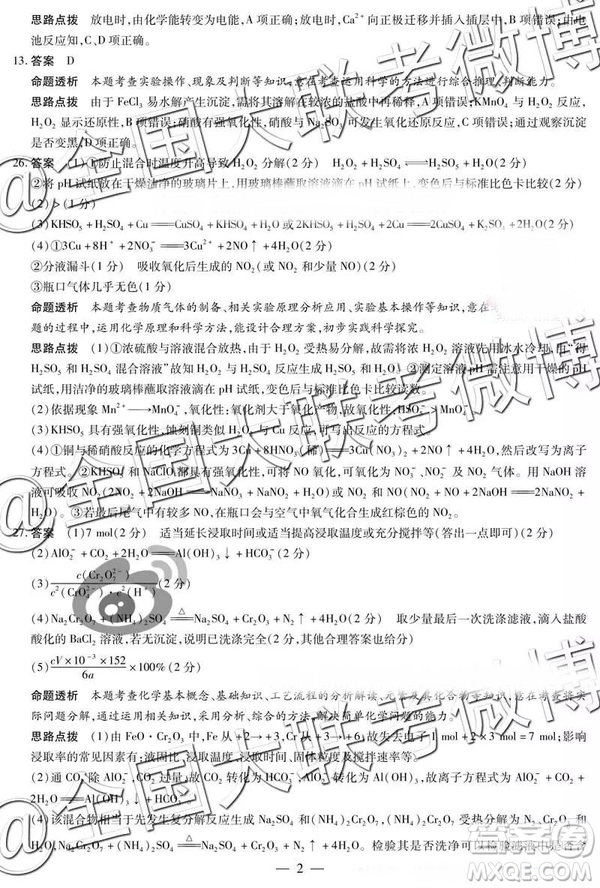 思路点拨 放电时,由化学能转变为电能,A项正确;放电时,Ca²⁺向正极迁移并插入插层中,B项错误;由电
池反应知,C、D项正确。
13. 答案 D
命题透析 本题考查实验操作、现象及判断等知识,意在考查运用科学的方法进行综合推理、判断能力。
思路点拨 由于FeCl₃易水解产生沉淀,需将其溶解在较浓的盐酸中再稀释,A项错误;KMnO₄与H₂O₂反应,
H₂O₂显示还原性,B项错误;硝酸有强氧化性,硝酸与Na₂SO₃可发生氧化还原反应,C项错误;通过观察沉淀
是否变黑,D项正确。
26. 答案 (1)①防止混合时温度升高导致H₂O₂分解(2分) H₂O₂+H₂SO₄⇌H₂SO₅+H₂O(2分)
②将pH试纸放在干燥洁净的玻璃片上,用玻璃棒蘸取溶液滴在pH试纸上,变色后与标准比色卡比较(2分)
(2)>(2分)
(3)KHSO₅+H₂SO₄+Cu══CuSO₄+KHSO₄+H₂O(或2KHSO₅+Cu══CuSO₄+K₂SO₄+
(4)①3Cu+8H⁺+2NO₃⁻══3Cu²⁺+2NO↑+4H₂O(2分)
②分液漏斗(2分) 吸收氧化后生成的NO₂(或NO₂和少量NO)(2分)
③瓶口气体几乎无色(1分)
命题透析 本题考查物质气体的制备、相关实验原理分析应用、实验基本操作等知识,意在
题的过程中,运用化学原理和科学方法,能设计合理方案,初步实践科学探究。
思路点拨 (1)①浓硫酸与溶液混合放热,由于H₂O₂受热易分解,故需将浓H₂O₂溶液先用冰水冷却,由"得
H₂SO₅和H₂SO₄混合溶液"故知H₂O₂与H₂SO₄生成H₂SO₅和H₂O。②测定溶液pH需注意用干燥的pH
试纸,用洁净的玻璃棒蘸取溶液滴在pH试纸,变色后与标准比色卡比较读数。
(2)依据现象Mn²⁺→MnO₄⁻,氧化性:氧化剂大于氧化产物,故氧化性:HSO₅⁻>MnO₄⁻。
(3)KHSO₅具有强氧化性,蚀刻铜或H₂O₂与Cu反应,可写出反应的方程式。
(4)①铜与稀硝酸反应的化学方程式为3Cu+8HNO₃(稀)══3Cu(NO₃)₂+2NO↑+4H₂O,然后改写为离
子方程式。②KHSO₅和NaClO都具有强氧化性,可将NO氧化,可氧化为NO₃⁻、NO₂⁻及NO₂气体。用NaOH溶
液可吸收NO₂(2NO₂+2NaOH══NaNO₂+NaNO₃+H₂O)或NO₂和NO(NO+NO₂+2NaOH══2NaNO₂+
H₂O)。③若最后尾气中含有较多NO,在瓶口会与空气中氧气化合生成红棕色的NO₂。
27. 答案 (1)7 mol(2分) 适当延长浸取时间或适当提高浸取温度或充分搅拌等(答出一点即可)(2分)
(2)AlO₂⁻+CO₂+2H₂O══Al(OH)₃↓+HCO₃⁻(2分)
(3)c(Cr₂O₇²⁻)/[c²(CrO₄²⁻)·c²(H⁺)](2分)
(4)Na₂Cr₂O₇+(NH₄)₂SO₄═△═Na₂SO₄+Cr₂O₃+N₂↑+4H₂O(2分) 取少量最后一次洗涤滤液,滴入盐酸
酸化的BaCl₂溶液,若无沉淀,说明已洗涤完全(2分,其他合理答案也给分)
(5)(cV×10⁻³×152)/6a×100%(2分)
命题透析 本题考查化学基本概念、基础知识、工艺流程的分析解读、元素及其化合物等知识,意在考查将实
际问题分解,通过运用相关知识,采用分析、综合的方法,解决简单化学问题的能力。
思路点拨 (1)由FeO·Cr₂O₃中,Fe从+2→+3,Cr从+3→+6,故失去电子1 mol+2×3 mol=7 mol;影响
浸取率的常见因素有:浓度、浸取温度、浸取时间、固体粒度及搅拌速率等。
(2)通CO₂除AlO₂⁻,CO₂过量,故CO₂转化为HCO₃⁻,AlO₂⁻转化为Al(OH)₃,故离子方程式为AlO₂⁻+CO₂+
2H₂O══Al(OH)₃↓+HCO₃⁻。
(4)该混合物相当于先发生复分解反应生成Na₂SO₄和(NH₄)₂Cr₂O₇,(NH₄)₂Cr₂O₇受热分解生成Cr₂O₃、
N₂和H₂O,故反应为Na₂Cr₂O₇+(NH₄)₂SO₄═△═Na₂SO₄+Cr₂O₃+N₂↑+4H₂O。检验其是否洗净可以检验滤液中是否含
— 2 —
@全国大联考微博
@全国大联考微博
@全国大联考微博
答案圈
MXQE.COM